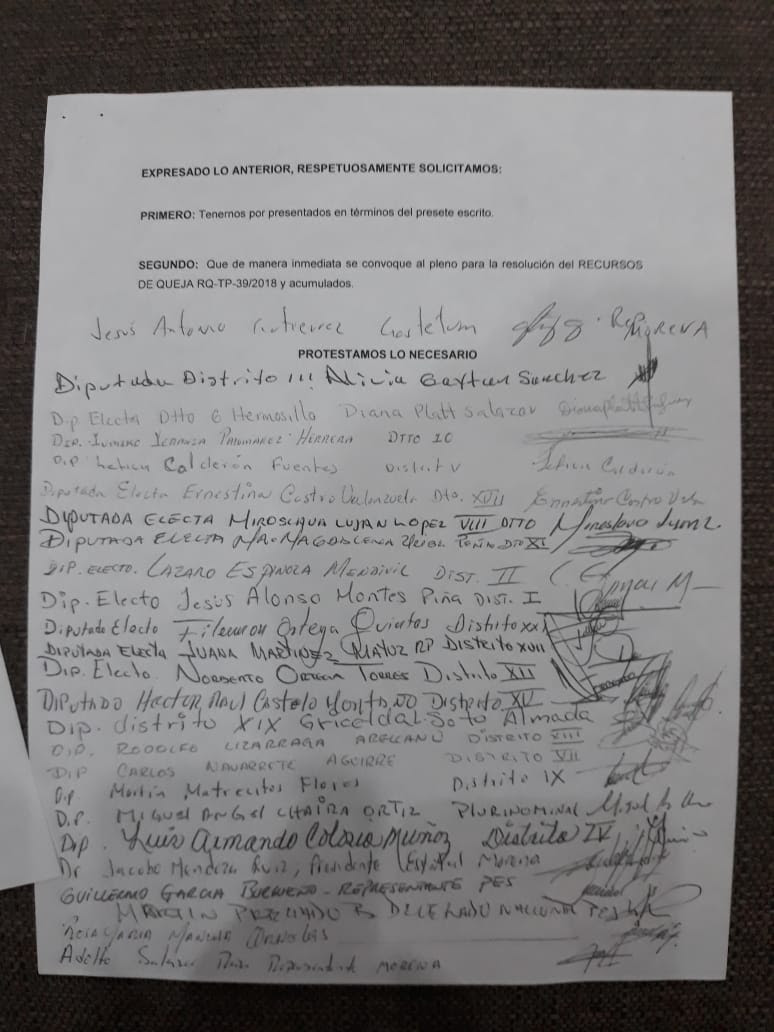 EXPRESADO LO ANTERIOR, RESPETUOSAMENTE SOLICITAMOS:
PRIMERO: Tenernos por presentados en términos del presete escrito.
SEGUNDO: Que de manera inmediata se convoque al pleno para la resolución del RECURSOS
DE QUEJA RQ-TP-39/2018 y acumulados.
Jesús Antonio Gutierrez Gastelum Rep MORENA
PROTESTAMOS LO NECESARIO
Diputada Distrito III Alicia Gaytan Sanchez
Dip Electa Dtto 6 Hermosillo Diana Platt Salazar
DIP. HERRERA DTTO 10
DIP Leticia Calderón Fuentes Distrit V Leticia Calderón
Diputada Electa Ernestina Castro Valenzuela Dto. XVII Ernestina Castro
DIPUTADA ELECTA MIROSLAVA LUJAN LOPEZ VIII DTTO Miroslava
DIPUTADA ELECTA MA. MAGDALENA DTO XI
DIP. ELECTO. LAZARO ESPINOZA MENDIVIL DIST. II
Dip. Electo Jesús Alonso Montes Piña DIST. I
Diputado Electo Filemon Ortega Quintos Distrito XX
DIPUTADA ELECTA JUANA MARTINEZ RP DISTRITO XVII
Dip. Electo NORBERTO ORTEGA TORRES Distrito XII
DIPUTADO HECTOR RAUL CASTELO MONTAÑO Distrito XV
Dip. distrito XIX Griselda Soto Almada
DIP. RODOLFO LIZARRAGA ARELLANO DISTRITO XVIII
DIP CARLOS NAVARRETE AGUIRRE DISTRITO VII
Dip Martín Matrecitos Flores Distrito IX
D.P. MIGUEL ANGEL CHAIRA ORTIZ PLURINOMINAL
Dip. Luis Armando Colosio Muñoz Distrito IV
Dr Jacobo Mendoza Ruiz, Presidente Estatal Morena
GUILLERMO GARCIA - REPRESENTANTE PES
MARTIN PRECIADO B DELEGADO NACIONAL PES
ROSA MARIA
Adolfo Salazar MORENA